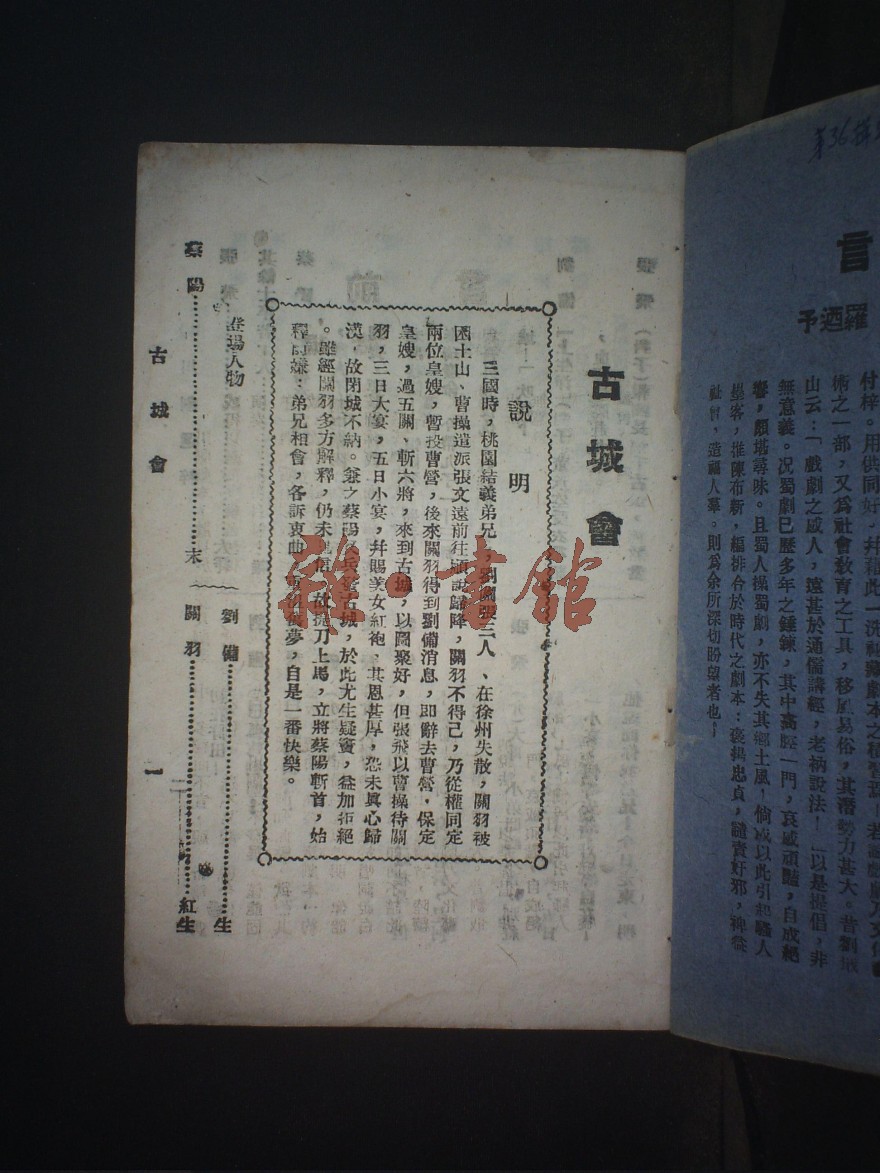 第36
言
羅迺予
付梓。用供同好，幷藉此一洗
術之一部，又爲社會敎育之工具，移風易俗，其潛勢力甚大。昔劉
山云：「戲劇之感人，遠甚於通儒講經，老衲說法，」以是提倡，非
無意義。况蜀劇已歷多年之錘鍊，其中高腔一門，哀感頑豔，自成絕
響，頗堪尋味。且蜀人操蜀劇，亦不失其鄉土風！倘
以此引起騷人
墨客，推陳布新，編排合於時代之劇本：褒揚忠貞，譴責奸邪，裨益
社會，造福人羣。則爲余所深切盼望者也！
古城會
說明
三國時，桃園結義弟兄，劉關張三人、在徐州失散，關羽被
困土山、曹操遣派張文遠前往順說歸降，關羽不得已，乃從權同定
兩位皇嫂，暫投曹營，後來關羽得到劉備消息，即辭去曹營，保定
皇嫂，過五關、斬六將，來到古城，以圖聚好，但張飛以曹操待關
羽，三日大宴，五日小宴，幷賜美女紅袍、其恩甚厚，恐未眞心歸
漢，故閉城不納。兼之蔡陽
兵
古城，於此尤生疑竇，益加拒絕
。雖經關羽多方解釋，仍未
信，故提刀上馬，立將蔡陽斬首，始
釋
嫌：弟兄相會，各訴衷曲，
夢，自是一番快樂。
雜·書館
登場人物
劉備……生
關羽……紅生
蔡陽……末
古城會
一